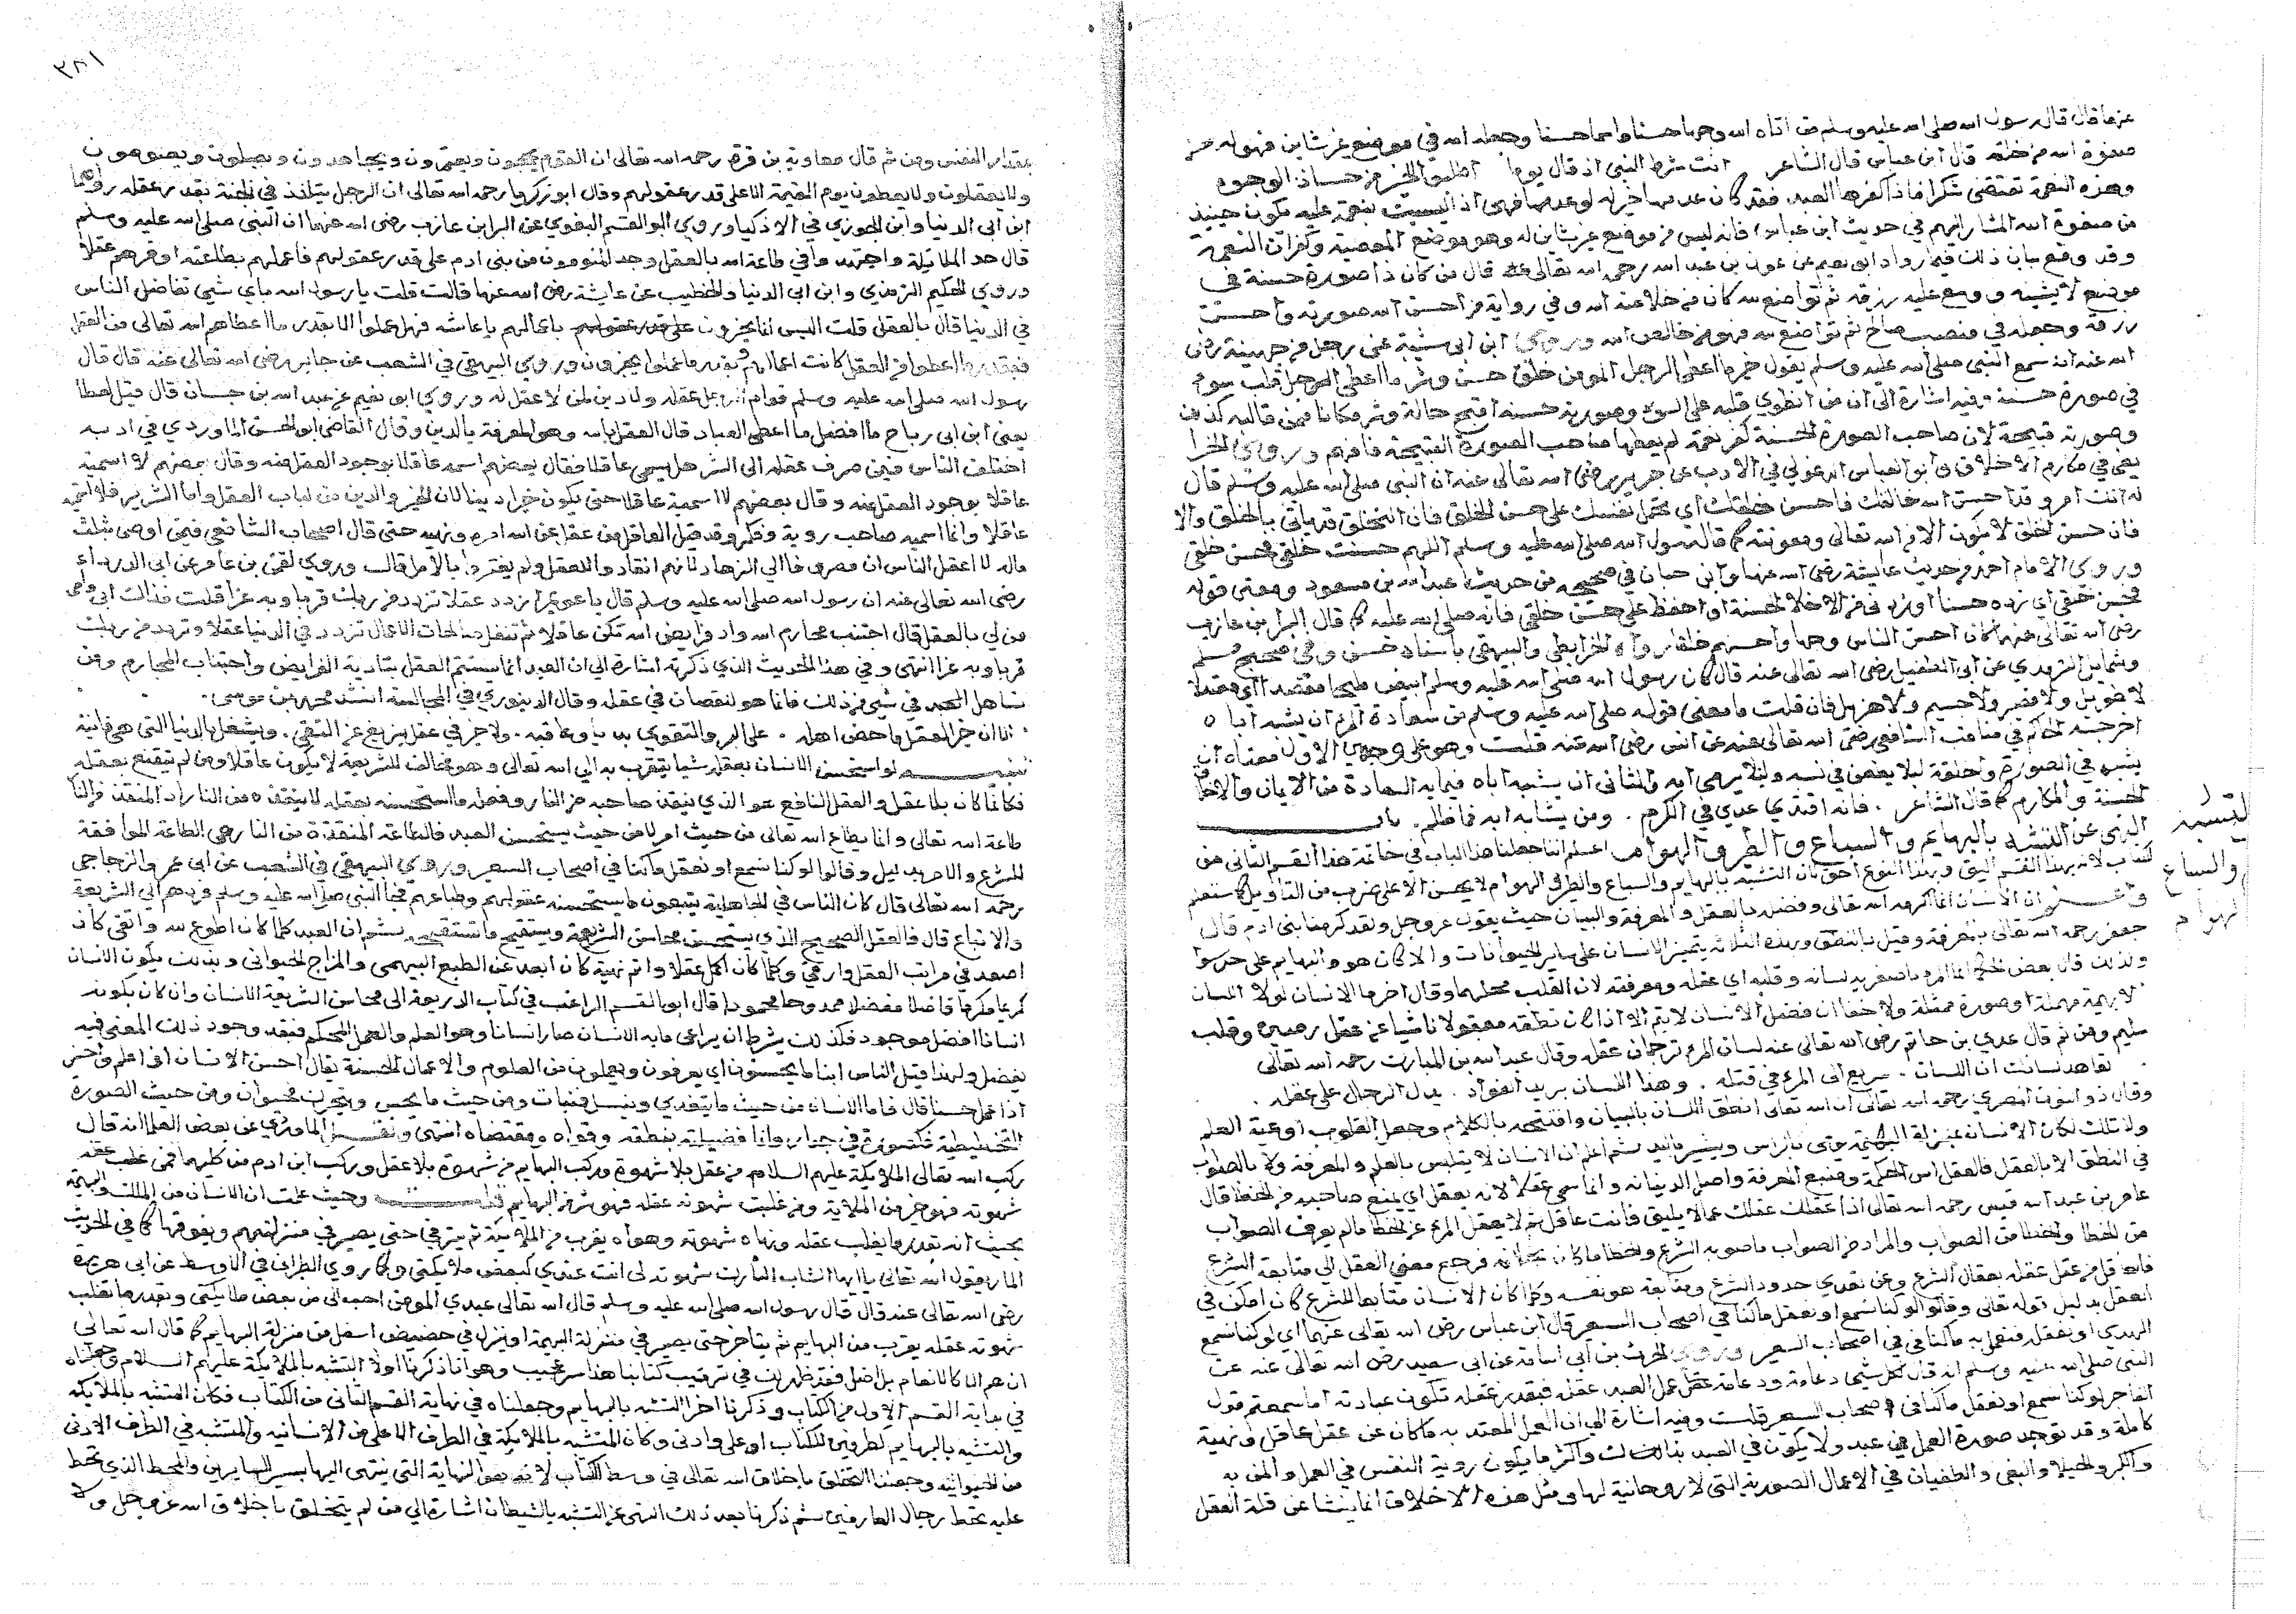 عنهما قال قال رسول الله صلى الله عليه وسلم من اتاه الله وجها حسنا واسما حسنا وجعله الله في موضع غير شاين فهو له من
صفوة الله من خلقه قال ابن عباس قال الشاعر انت شرط النبي اذ قال يوما اطلبوا الخير من حسان الوجوه
وهذه النعمة تقتضي شكرا فاذا كفرها العبد فقد كان عدمها خيرا له لوعدمها فهي اذا ليست بنعمة عليه يكون حينيذ
من صفوة الله المشار اليهم في حديث ابن عباس فانه ليس في موضع غير شاين له وهو موضع المعصية وكفران النعمة
وقد وقع بيان ذلك فيما رواه ابو نعيم عن عون بن عبد الله رحمه الله تعالى قال من كان ذا صورة حسنة في
موضع لا يشينه ووسع عليه رزقه ثم تواضع لله كان من خلاصة الله وفي رواية من احسن الله صورته واحسن
رزقه وجعله في منصب صالح ثم تواضع لله فهو من خالص الله وروى ابن ابي شيبة عن رجل من جهينة رضي
الله عنه انه سمع النبي صلى الله عليه وسلم يقول خير ما اعطي الرجل المومن خلق حسن وشر ما اعطي الرجل قلب سوء
في صورة حسنة وفيه اشارة الى ان من انطوى قلبه على السوء وصورته حسنة اقبح حالة وشر مكانا ممن قالبه كذلك
وصورته قبيحة لان صاحب الصورة الحسنة كفر نعمة لم يعطها صاحب الصورة القبيحة فافهم وروى الخرا
يطي في مكارم الاخلاق وابو العباس الدغولي في الادب عن جرير رضي الله تعالى عنه ان النبي صلى الله عليه وسلم قال
له انت امرؤ قد احسن الله خلقك فاحسن خلقك اي تحمل نفسك على حسن الخلق فان التخلق قد ياتي بالخلق والا
فان حسن الخلق لا يكون الا من الله تعالى ومعونته كما قال رسول الله صلى الله عليه وسلم اللهم حسنت خلقي فحسن خلقي
وروى الامام احمد من حديث عايشة رضي الله عنها وابن حبان في صحيحه من حديث عبد الله بن مسعود ومعنى قوله
فحسن خلقي اي زده حسنا او زدني من الاخلاق الحسنة او احفظ علي حسن خلقي فانه صلى الله عليه كما قال البرا بن عازب
رضي الله تعالى عنهما كان احسن الناس وجها واحسنهم خلقا رواه الخرايطي والبيهقي باسناد حسن وفي صحيح مسلم
وشمايل الترمذي عن ابي الطفيل رضي الله تعالى عنه قال كان رسول الله صلى الله عليه وسلم ابيض مليحا مقصدا اي معتدلا
لا طويل ولا قصير ولا جسيم ولا هزيل فان قلت ما معنى قوله صلى الله عليه وسلم من سعادة المرء ان يشبه اباه
اخرجه الحاكم في مناقب الشافعي رضي الله تعالى عنه عن انس رضي الله عنه قلت وهو على وجهين الاول معناه ان
يشبهه في الصورة والخلقة ليلا يطعن في نسبه وليلا يرمى ابيه والثاني ان يشبه اباه فيما به السعادة من الايمان والاخلاق
الحسنة والمكارم كما قال الشاعر . فانه اقتدى عدي في الكرم . ومن يشابه ابه فما ظلم . باب
النهي عن التشبه بالبهايم والسباع والطير والهوام اعلم اننا جعلنا هذا الباب في خاتمة هذا القسم الثاني من
الكتاب لانه بهذا القسم اليق وبهذا النوع احق لان التشبه بالبهايم والسباع والطير والهوام لا يحسن الا على ضرب من التاويل كما ستعلم
واعلم ان الانسان انما اكرمه الله تعالى وفضله بالعقل والمعرفة والبيان حيث يقول عز وجل ولقد كرمنا بني ادم قال
جعفر رحمه الله تعالى بالمعرفة وقيل بالنطق وبهذه الثلاثة يتميز الانسان على ساير الحيوانات والا كان هو والبهايم على حد سوا
ولذلك قال بعض الحكما انما المرء باصغريه لسانه وقلبه اي عقله ومعرفته لان القلب محلهما وقال اخر ما الانسان لولا اللسان
الا بهيمة مهملة او صورة ممثلة ولا خفا ان فضل الانسان لا يتم الا اذا كان نطقه معقولا ناشيا عن عقل رصين وقلب
سليم ومن ثم قال عدي بن حاتم رضي الله تعالى عنه لسان المرء ترجمان عقله وقال عبد الله بن المبارك رحمه الله تعالى
تعاهد لسانك ان اللسان . سريع الى المرء في قتله . وهذا اللسان بريد الفواد . يدل الرجال على عقله .
وقال ذو النون المصري رحمه الله تعالى ان الله تعالى انطق اللسان بالبيان وافتتحه بالكلام وجعل القلوب اوعية العلم
ولا ذلك لكان الانسان بمنزلة البهيمة يومي بالراس ويشير باليد ثم اعلم ان الانسان لا يتلبس بالعلم والمعرفة ولا بالصواب
في النطق الا بالعقل فالعقل اس الحكمة ومنبع المعرفة واصل الديانة وانما سمي عقلا لانه يعقل اي يمنع صاحبه من الخطا قال
عامر بن عبد الله قيس رحمه الله تعالى اذا عقلك عقلك عما لا يليق فانت عاقل ثم لا يعقل المرء عن الخطا ما لم يعرف الصواب
من الخطا والخطا من الصواب والمراد من الصواب ما صوبه الشرع والخطا ما كان بخلافه فرجع معنى العقل الى متابعة الشرع
فالعاقل من عقل عقله بعقال الشرع وعن تعدي حدود الشرع ومتابعة هو نفسه وكلما كان الانسان متابعا للشرع كان امكن في
العقل بدليل قوله تعالى وقالوا لو كنا نسمع او نعقل ما كنا في اصحاب السعير قال ابن عباس رضي الله تعالى عنهما اي لو كنا نسمع
الهدى او نعقله فنعمل به ما كنا في اصحاب السعير وروى الحرث بن ابي اسامة عن ابي سعيد رضي الله تعالى عنه عن
النبي صلى الله عليه وسلم انه قال لكل شي دعامة ودعامة عمل العبد عقله فبقدر عقله تكون عبادته اما سمعتم قول
الفاجر لو كنا نسمع او نعقل ما كنا في اصحاب السعير قلت وفيه اشارة الى ان العمل المعتد به ما كان عن عقل عاقل ونية
كاملة وقد توجد صورة العمل في عبد ولا يكون في العبد بذلك واكثر ما يكون روية النفس في العمل والمن به
والكبر والخيلا والبغي والطغيان في الاعمال الصورية التي لا روحانية لها ومثل هذه الاخلاق انما ينشا عن قلة العقل
التشبه
والسباع
الهوام
٣٨١
بمقدار النقص ومن ثم قال معاوية بن قرة رحمه الله تعالى ان القوم يحجون ويعتمرون ويجاهدون ويصلون ويصومون
ولا يعقلون ولا يعطون يوم القيمة الا على قدر عقولهم وقال ابو زكريا رحمه الله تعالى ان الرجل يتلذذ في الجنة بقدر عقله رواهما
ابن ابي الدنيا وابن الجوزي في الاذكيا وروى ابو القسم البغوي عن البرا بن عازب رضي الله عنهما ان النبي صلى الله عليه وسلم
قال جد الملايكة واجتهدوا في طاعة الله بالعقل وجد المومنون من بني ادم على قدر عقولهم فاعملهم بطاعة الله اوفرهم عقلا
وروى الحكيم الترمذي وابن ابي الدنيا والخطيب عن عايشة رضي الله عنها قالت قلت يا رسول الله باي شي تفاضل الناس
في الدنيا قال بالعقل قلت اليس انما يجزون على قدر عقولهم باعمالهم قال يا عايشه فهل عملوا الا بقدر ما اعطاهم الله تعالى من العقل
فبقدر ما اعطوا من العقل كانت اعمالهم وبقدر ما عملوا يجزون وروى البيهقي في الشعب عن جابر رضي الله تعالى عنه قال قال
رسول الله صلى الله عليه وسلم قوام المرء عقله ولا دين لمن لا عقل له وروى ابو نعيم عن عبد الله بن حسان قال قيل لعطا
يعني ابن ابي رباح ما افضل ما اعطي العباد قال العقل بالله وهو المعرفة بالدين وقال القاضي ابو الحسن الماوردي في ادبه
اختلف الناس فيمن صرف عقله الى الشر هل يسمى عاقلا فقال بعضهم اسميه عاقلا لوجود العقل منه وقال بعضهم لا اسميه
عاقلا بوجود العقل منه وقال بعضهم لا اسميه عاقلا حتى يكون خيرا دينا لان الخير والدين من لباب العقل واما الشرير فلا اسميه
عاقلا وانما اسميه صاحب روية وفكر وقد قيل العاقل من عقل عن الله امره ونهيه حتى قال اصحاب الشافعي فيمن اوصى بثلث
ماله لاعقل الناس انه مصروف الى الزهاد لانهم انقادوا للعقل ولم يغتروا بالامل قال وروى لقمن بن عامر عن ابي الدرداء
رضي الله تعالى عنه ان رسول الله صلى الله عليه وسلم قال يا عويمر ازدد عقلا تزدد من ربك قربا وبه عزا قلت فداك ابي وامي
من لي بالعقل قال اجتنب محارم الله واد فرايض الله تكن عاقلا ثم تنفل صالحات الاعمال تزدد في الدنيا عقلا وتزدد من ربك
قربا وبه عزا انتهى وفي هذا الحديث الذي ذكرته اشارة الى ان العبد انما يستتم العقل بتادية الفرايض واجتناب المحارم ومن
تساهل العبد في شي من ذلك فانما هو لنقصان في عقله وقال الدينوري في المجالسة انشد محمد بن موسى .
الا ان خير العقل ما حض اهله . على البر والتقوى بدا وعاقبه . ولا خير في عقل يزيغ عن التقى . ويشغل بالدنيا التي هي فانية
تنبيه لو استحسن الانسان بعقله شيا يتقرب به الى الله تعالى وهو مخالف للشريعة لا يكون عاقلا ومن لم ينتفع بعقله
فكانما كان بلا عقل والعقل النافع هو الذي ينقذ صاحبه من النار وفعله ما استحسنه بعقله لا ينقذه من النار اذ المنقذ من النار
طاعة الله تعالى وانما يطاع الله تعالى من حيث امر لا من حيث يستحسن العبد فالطاعة المنقذة من النار هي الطاعة الموافقة
للشرع والامر بدليل وقالوا لو كنا نسمع او نعقل ما كنا في اصحاب السعير وروى البيهقي في الشعب عن ابي عمرو الزجاجي
رحمه الله تعالى قال كان الناس في الجاهلية يتبعون ما يستحسنه عقولهم وطباعهم فجا النبي صلى الله عليه وسلم فردهم الى الشريعة
والاتباع قال فالعقل الصحيح الذي يستحسن محاسن الشريعة ويستقبح ما تستقبحه ثم ان العبد كلما كان اطوع لله واتقى كان
اصعد في مراتب العقل وارقى وكلما كان اكمل عقلا واتم نهية كان ابعد عن الطبع البهيمي والمزاج الحيواني وبذلك يكون الانسان
كريما مكرما فاضلا مفضلا ممدوحا محمودا قال ابو القسم الراغب في كتاب الذريعة الى محاسن الشريعة الانسان وان كان بكونه
انسانا افضل موجود فكذلك بشرط ان يراعى ما به الانسان صار انسانا وهو العلم والعمل المحكم فبقدر وجود ذلك المعنى فيه
يفضل ولهذا قيل الناس ابنا ما يحسنون اي يعرفون ويعملون من العلوم والاعمال الحسنة يقال احسن الانسان اذا علم واحسن
اذا عمل حسنا قال فاما الانسان من حيث ما يتغذى وينسل فنبات ومن حيث ما يحس ويتحرك فحيوان ومن حيث الصورة
التخطيطية فكصورة في جدار وانما فضيلته بنطقه وقواه ومقتضاه انتهى ونقل الماوردي عن بعض العلما انه قال
ركب الله تعالى الملايكة عليهم السلام من عقل بلا شهوة وركب البهايم من شهوة بلا عقل وركب ابن ادم من كليهما فمن غلب عقله
شهوته فهو خير من الملايكة ومن غلبت شهوته عقله فهو شر من البهايم قلت وحيث علمت ان الانسان من الملك والبهيمة
بحيث انه بقدر ما يغلب عقله وزهاه شهوته وهواه يقرب من الملايكة ثم يترقى حتى يصير في منزلتهم ويفوقها كما في الحديث
المار يقول الله تعالى يا ايها الشاب التارك شهوته لي انت عندي كبعض ملايكتي وكما روى الطبراني في الاوسط عن ابي هريرة
رضي الله تعالى عنه قال قال رسول الله صلى الله عليه وسلم قال الله تعالى عبدي المومن احب الي من بعض ملايكتي وبقدر ما تغلب
شهوته عقله يقرب من البهايم ثم يتاخر حتى يصير في منزلة البهيمة او ينزل في حضيض اسفل من منزلة البهايم كما قال الله تعالى
ان هم الا كالانعام بل اضل فقد ظهر لك في ترتيب كتابنا هذا سر عجيب وهو انا ذكرنا اولا التشبه بالملايكة عليهم السلام وجعلناه
في بداية القسم الاول من الكتاب وذكرنا اخر التشبه بالبهايم وجعلناه في نهاية القسم الثاني من الكتاب فكان التشبه بالملايكه
والتشبه بالبهايم لطرفين للكتاب اعلى وادنى وكان المتشبه بالملايكة في الطرف الاعلى من الانسانيه والمتشبه في الطرف الادنى
من الحيوانيه وجعلنا التخلق باخلاق الله تعالى في وسط الكتاب لانه هو النهاية التي ينتهي اليها بسير السايرين والمحط الذي تحط
عليه بخط رجال العارفين ثم ذكرنا بعد ذلك النهي عن التشبه بالشيطان اشارة الى من لم يتخلق باخلاق الله عز وجل ولا